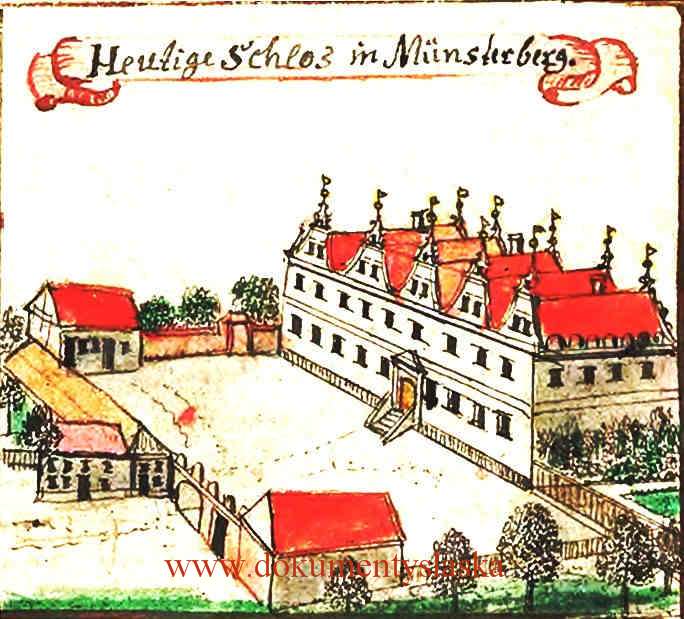 Heutige Schlos in Münsterberg.
www.dokumentyslaska